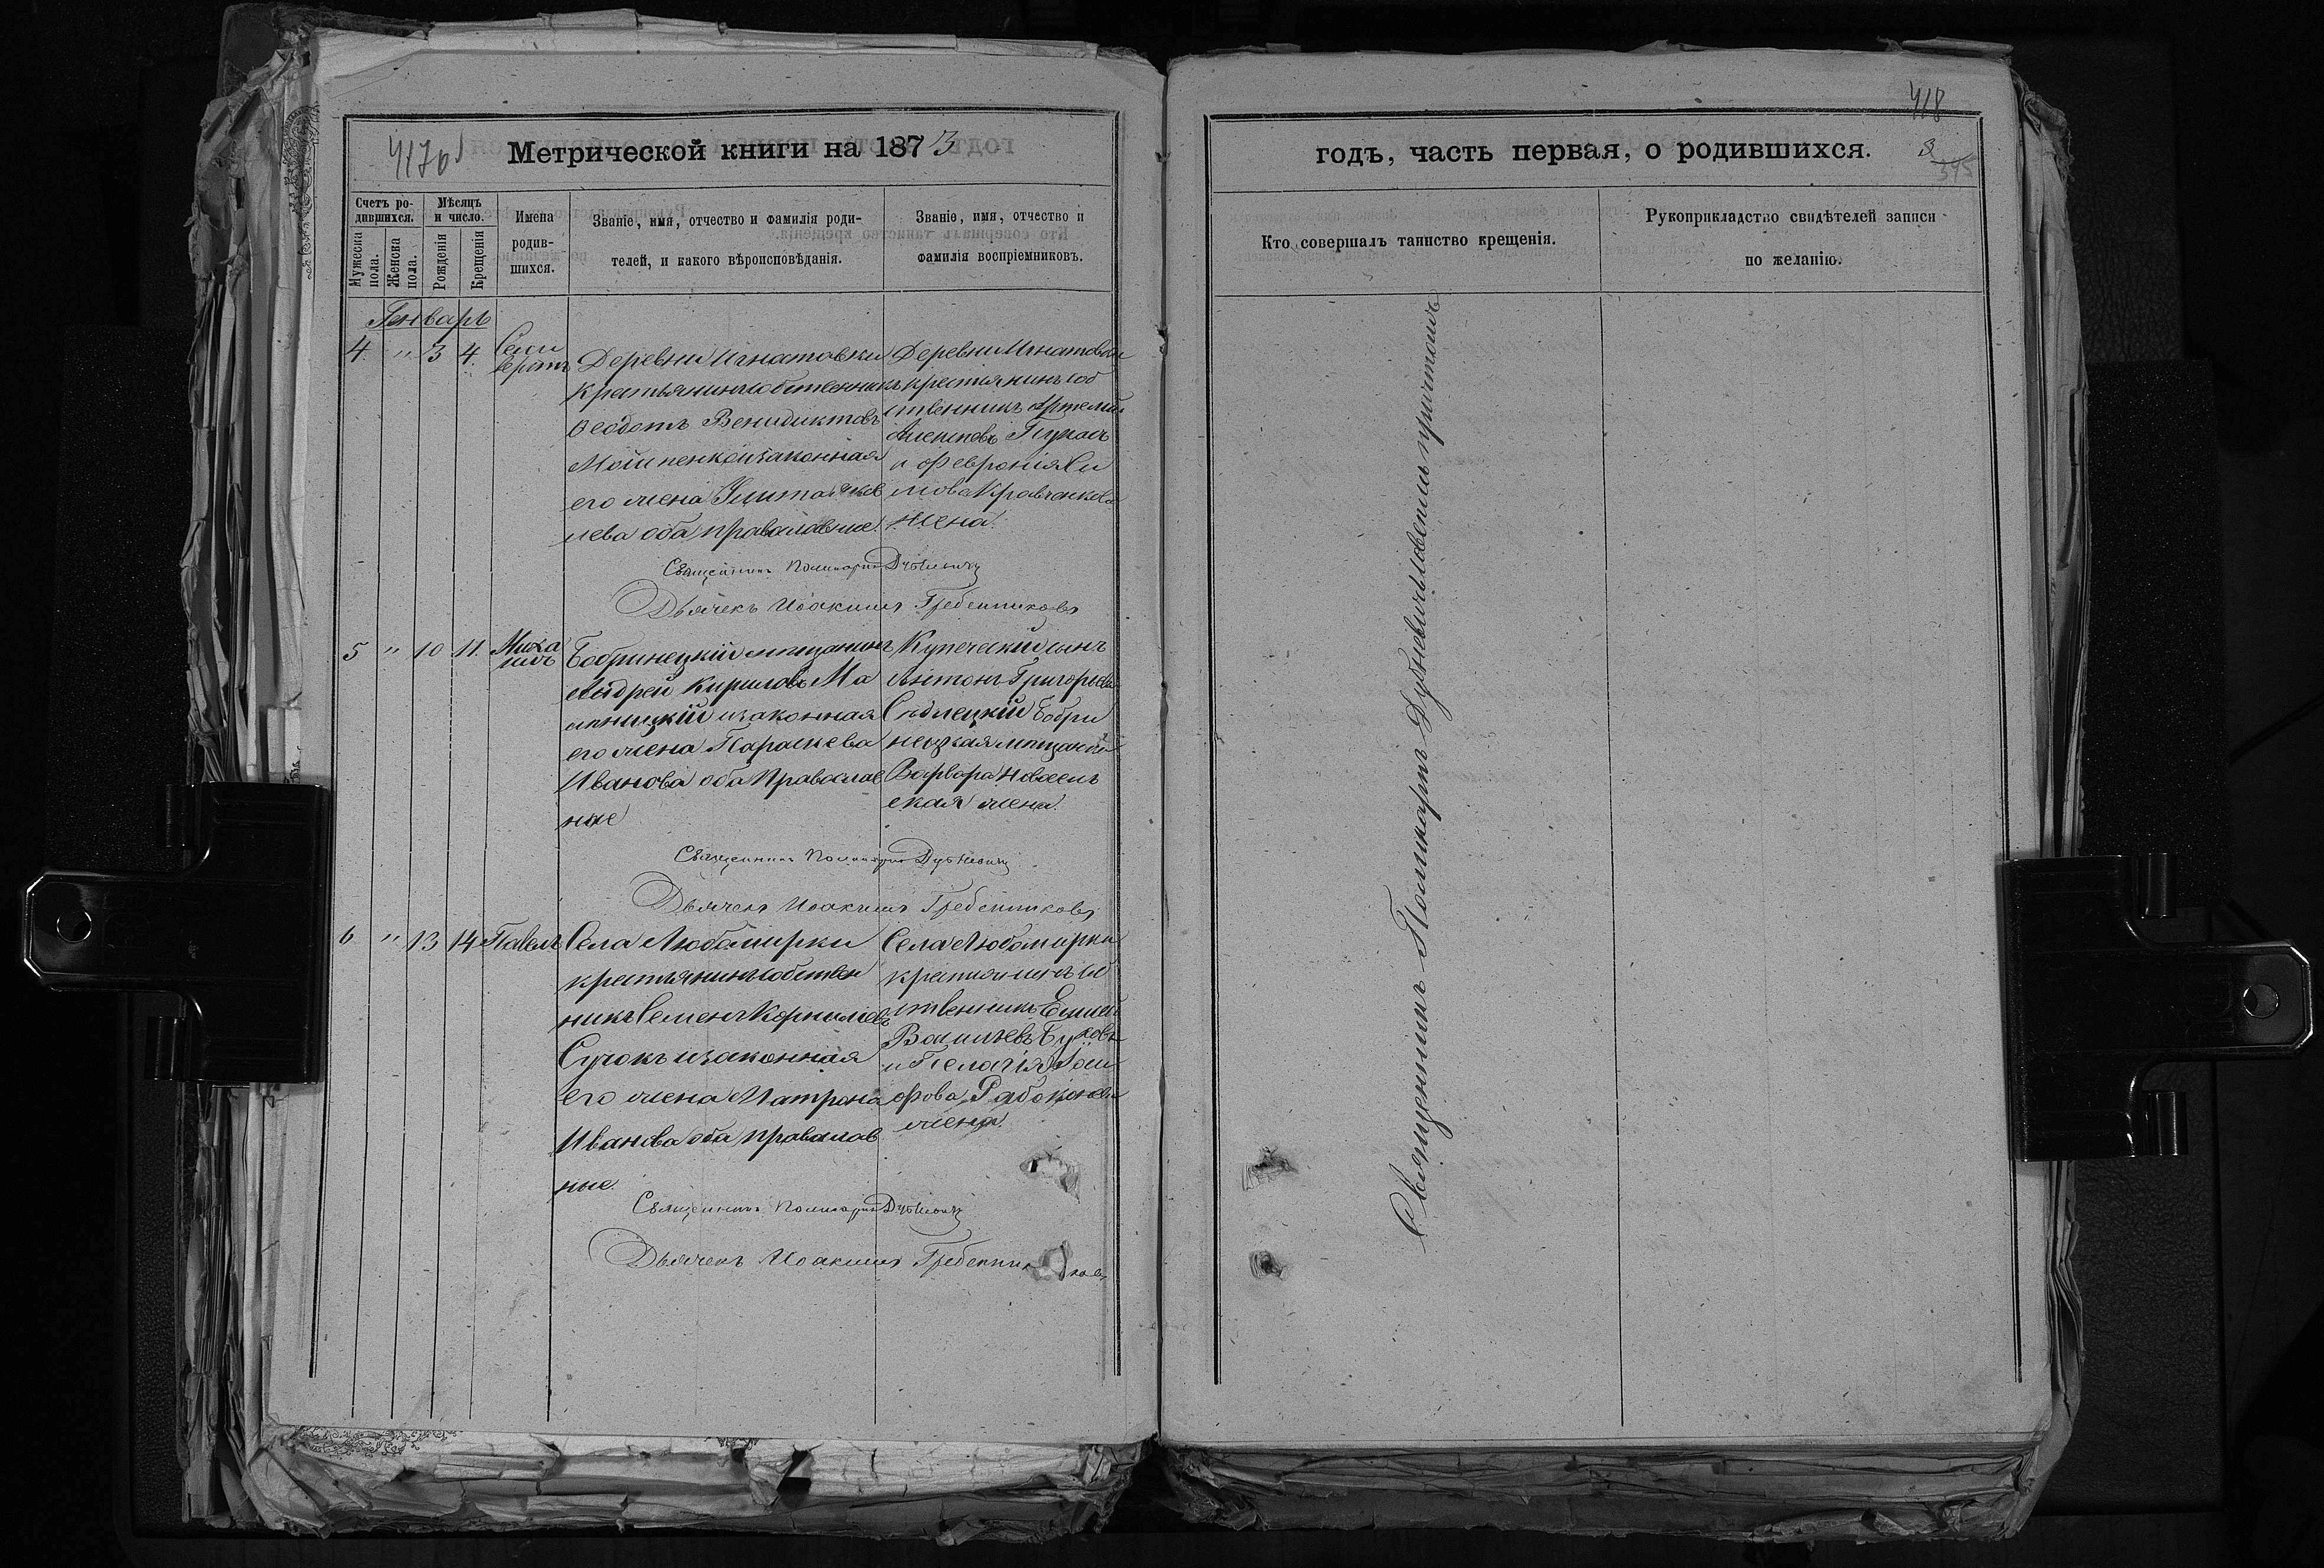 418
Метрической книги на 1873
годъ, часть первая, о родившихся.
Счетъ родившихся.
Мужеска пола.
Женска пола.
Мѣсяцъ и число.
Рожденія
Крещенія
Имена родившихся.
Званіе, имя, отчество и фамилія роди-
телей, и какого вѣроисповѣданія.
Званіе, имя, отчество и
фамилія воспріемниковъ.
Кто совершалъ таинство крещенія.
Рукоприкладство свидѣтелей записи
по желанію.
Генварь
4 " 3 4. Сели
вертъ
Деревни Игнатовки
крестьянинъ собственникъ
Ѳеодотъ Венидиктовъ
и законная
его жена
лева оба православные.
Деревни Игнатовки
крестьянинъ соб
ственникъ Артемій
и Февронія
Кравченкова
жена.
Священникъ Поликарпъ Дубневичъ
Дьячекъ Иоакимъ Гребенниковъ
5 " 10 11. Миха
илъ
Бобринецкій мѣщанинъ
Андрей Кириловъ Ма
и законная
его жена Параскева
Иванова оба Православ
ные
Купеческій сынъ
Антонъ Григорьевъ
Сѣдлецкій Бобри
нецкая мѣщанка
Варвара
ская жена.
Священникъ Поликарпъ Дубневичъ
Дьячекъ Иоакимъ Гребенниковъ
6 " 13 14 Павелъ
Села Любомирки
крестьянинъ собствен
никъ Семенъ Корнилиевъ
Сучокъ и законная
его жена Матрона
Иванова оба православ
ные.
Села Любомирки
крестьянинъ соб
ственникъ
Васильевъ
и Пелагія
жена.
Священникъ Поликарпъ Дубневичъ
Дьячекъ Иоакимъ Гребенниковъ
Священникъ Поликарпъ Дубневичъ съ причтомъ